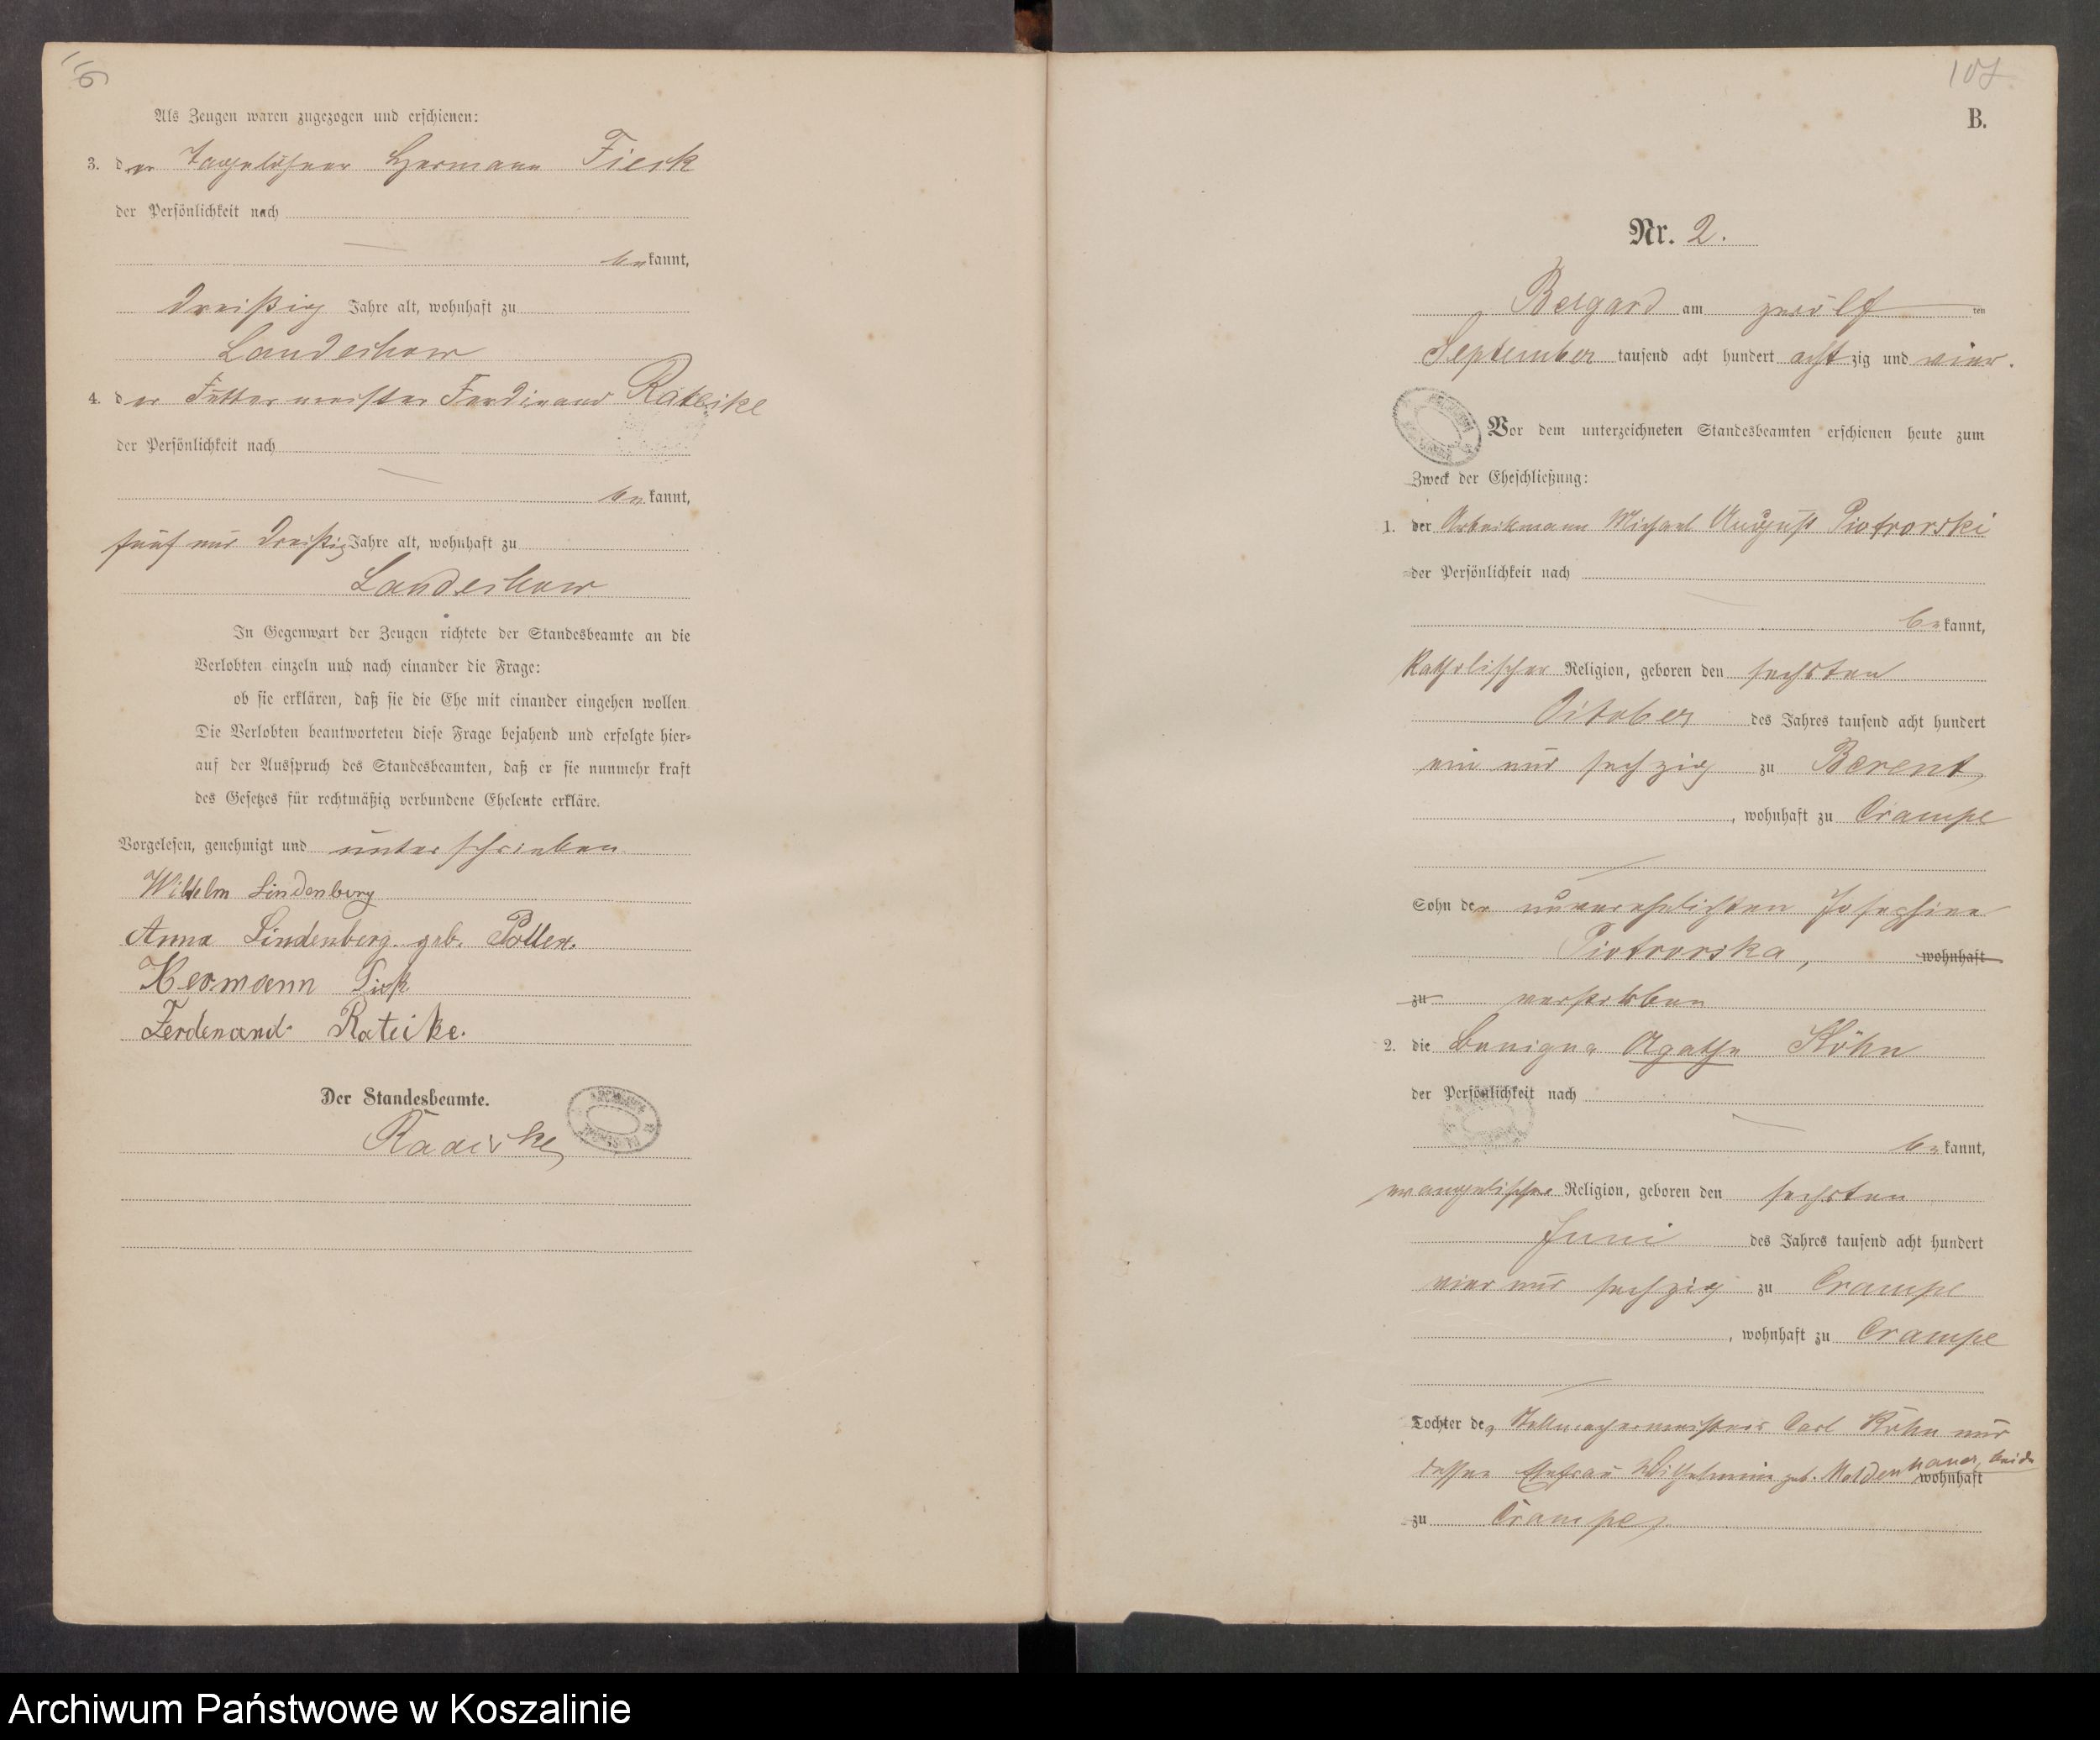 Als Zeugen waren zugezogen und erschienen:
3. der Tagelöhner Hermann Fieck
der Persönlichkeit nach
bekannt,
dreißig Jahre alt, wohnhaft zu
Landechow
4. der Futtermeister Ferdinand Rateike
der Persönlichkeit nach
bekannt,
fünf und dreißig Jahre alt, wohnhaft zu
Landechow
In Gegenwart der Zeugen richtete der Standesbeamte an die
Verlobten einzeln und nach einander die Frage:
ob sie erklären, daß sie die Ehe mit einander eingehen wollen
Die Verlobten beantworteten diese Frage bejahend und erfolgte hier-
auf der Ausspruch des Standesbeamten, daß er sie nunmehr kraft
des Gesetzes für rechtmäßig verbundene Eheleute erkläre.
Vorgelesen, genehmigt und unterschrieben
Wilhelm Lindenberg
Anna Lindenberg geb.
Hermann Fick
Ferdenand Rateike.
Der Standesbeamte.
107
B.
Nr. 2.
Belgard am zwölf ten
September tausend acht hundert achtzig und vier.
Vor dem unterzeichneten Standesbeamten erschienen heute zum
Zweck der Eheschließung:
1. der Arbeitsmann Michael August Piotrorski
der Persönlichkeit nach
bekannt,
katholischer Religion, geboren den sechsten
October des Jahres tausend acht hundert
ein und sechzig zu Berent,
, wohnhaft zu Crampe
Sohn der unverehelichten Josephine
Piotrorska, wohnhaft
zu verstorben
2. die Benigna Agathe Köhn
der Persönlichkeit nach
bekannt,
evangelischer Religion, geboren den sechsten
Juni des Jahres tausend acht hundert
vier und sechzig zu Crampe
, wohnhaft zu Crampe
Tochter des Stellmachermeisters Carl Köhn und
dessen Ehefrau Wilhelmine geb. Moldenhauer, beide wohnhaft
zu Crampe,
Archiwum Państwowe w Koszalinie